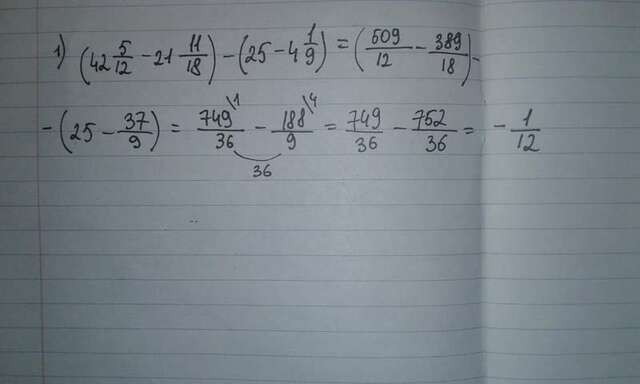 1) (42 5/12 - 21 11/18) - (25 - 4 1/9) = (509/12 - 389/18) -
- (25 - 37/9) = 749/36 \1 - 188/9 \4 = 749/36 - 752/36 = - 1/12
36